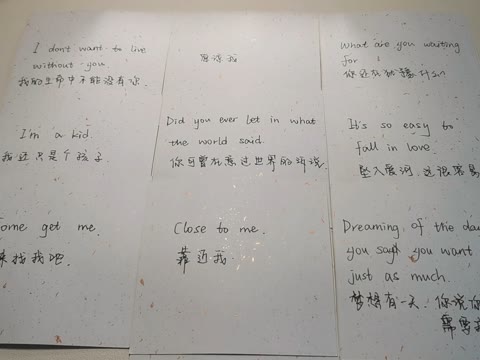 I don't want to live
without you.
我的生命中不能没有你.
原谅我
What are you waiting
for
你还在犹豫什么
I'm a kid.
我还只是个孩子.
Did you ever let in what
the world said.
你可曾在意过世界的诉说.
It's so easy to
fall in love.
坠入爱河.这很容易
Come get me.
来找我吧.
Close to me.
靠近我.
Dreaming of the day
you say you want
just as much.
梦想有一天.你说你
需要